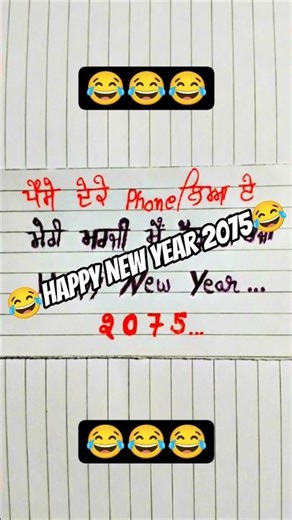 😂😂😂
ਪੈਸੇ ਦੇਕੇ Phone ਲਿਆ ਏ
ਮੇਰੀ ਮਰਜੀ ਮੈਂ
😂HAPPY NEW YEAR 2075😂
New Year...
2075...
😂😂😂